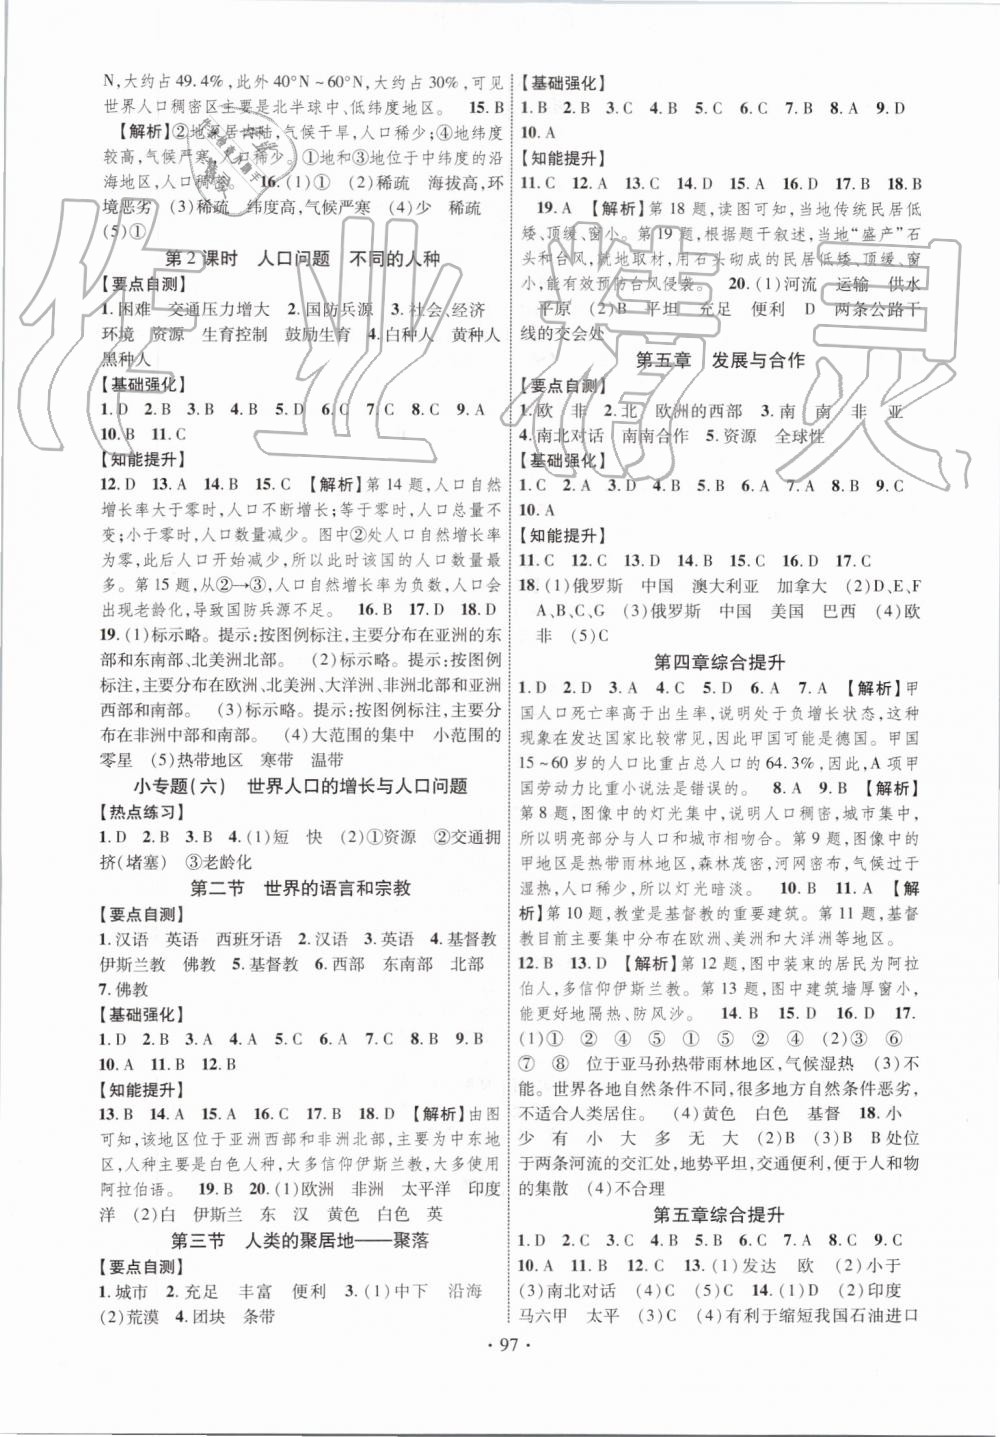 N,大约占49.4%,此外40°N~60°N,大约占30%,可见
世界人口稠密区主要是北半球中、低纬度地区。 15.B
【解析】②地深居内陆,气候干旱,人口稀少;④地纬度
较高,气候严寒,人口稀少。①地和③地位于中纬度的沿
海地区,人口稠密。 16.(1)① (2)稀疏 海拔高,环
境恶劣 (3)稀疏 纬度高,气候严寒 (4)少 稀疏
(5)①
第2课时 人口问题 不同的人种
【要点自测】
1.困难 交通压力增大 2.国防兵源 3.社会 经济
环境 资源 生育控制 鼓励生育 4.白种人 黄种人
黑种人
【基础强化】
1.D 2.B 3.B 4.B 5.D 6.D 7.C 8.C 9.A
10.B 11.C
【知能提升】
12.D 13.A 14.B 15.C 【解析】第14题,人口自然
增长率大于零时,人口不断增长;等于零时,人口总量不
变;小于零时,人口减少。图中②处人口自然增长率
为零,此后人口开始减少,所以此时该国的人口数量最
多。第15题,从②→③,人口自然增长率为负数,人口会
出现老龄化,导致国防兵源不足。 16.B 17.D 18.D
19.(1)标示略。提示:按图例标注,主要分布在亚洲的东
部和东南部、北美洲北部。 (2)标示略。提示:按图例
标注,主要分布在欧洲、北美洲、大洋洲、非洲北部和亚洲
西部和南部。 (3)标示略。提示:按图例标注,主要分
布在非洲中部和南部。 (4)大范围的集中 小范围的
零星 (5)热带地区 寒带 温带
小专题(六) 世界人口的增长与人口问题
【热点练习】
1.D 2.B 3.B 4.(1)短 快 (2)①资源 ②交通拥
挤(堵塞) ③老龄化
第二节 世界的语言和宗教
【要点自测】
1.汉语 英语 西班牙语 2.汉语 3.英语 4.基督教
伊斯兰教 佛教 5.基督教 6.西部 东南部 北部
7.佛教
【基础强化】
1.D 2.B 3.A 4.A 5.A 6.D 7.B 8.B 9.B
10.A 11.A 12.B
【知能提升】
13.B 14.A 15.A 16.C 17.B 18.D 【解析】由图
可知,该地区位于亚洲西部和非洲北部,主要为中东地
区,人种主要是白色人种,大多信仰伊斯兰教,大多使用
阿拉伯语。 19.B 20.(1)欧洲 非洲 太平洋 印度
洋 (2)白 伊斯兰 东 汉 黄色 白色 英
第三节 人类的聚居地——聚落
【要点自测】
1.城市 2.充足 丰富 便利 3.(1)中下 沿海
(2)荒漠 4.团块 条带
【基础强化】
1.B 2.B 3.C 4.C 5.C 6.D 7.B 8.A 9.D
10.A
【知能提升】
11.C 12.A 13.C 14.D 15.D 16.A 17.B 18.B
19.A 【解析】第18题,读图可知,当地传统民居低
矮、顶缓、窗小。第19题,根据题干叙述,当地“盛产”石
头和台风,就地取材,用石头砌成的民居低矮、顶缓、窗
小,能有效预防台风侵袭。 20.(1)河流 运输 供水
平原 (2)B 平坦 充足 便利 D 两条公路干
线的交会处
第五章 发展与合作
【要点自测】
1.欧 非 2.北 欧洲的西部 3.南 南 非 亚
4.南北对话 南南合作 5.资源 全球性
【基础强化】
1.C 2.A 3.A 4.D 5.A 6.D 7.D 8.B 9.C
10.A
【知能提升】
11.C 12.C 13.D 14.B 15.D 16.A 17.C
18.(1)俄罗斯 中国 澳大利亚 加拿大 (2)D、E、F
A、B、C、G (3)俄罗斯 中国 美国 巴西 (4)欧
非 (5)C
第四章综合提升
1.D 2.D 3.D 4.A 5.A 6.A 7.A 【解析】甲
国人口死亡率高于出生率,说明处于负增长状态,这种
现象在发达国家比较常见,因此甲国可能是德国。甲国
15~60岁的人口比重占总人口的64.3%,因此,A项甲
国劳动力比重小说法是错误的。 8.B 9.D 【解析】
第8题,图像中的灯光集中,说明人口稠密,城市集中,
所以明亮部分与人口和城市相吻合。第9题,图像中的
甲地区是热带雨林地区,森林茂密,河网密布,气候过于
湿热,人口稀少,所以灯光暗淡。 10.B 11.A 【解
析】第10题,教堂是基督教的重要建筑。第11题,基督
教目前主要集中分布在欧洲、美洲和大洋洲等地区。
12.B 13.D 【解析】第12题,图中装束的居民为阿拉
伯人,多信仰伊斯兰教。第13题,图中建筑墙厚窗小,
能更好地隔热、防风沙。 14.B 15.D 16.D 17.
(1)① ② ④ ⑤ ① ⑤ ② ④ (2)③ ⑥
⑦ ⑧ 位于亚马孙热带雨林地区,气候湿热 (3)不
能。世界各地自然条件不同,很多地方自然条件恶劣,
不适合人类居住。 (4)黄色 白色 基督 18.小
少 有 小 大 多 无 大 (2)B (3)B B处位
于两条河流的交汇处,地势平坦,交通便利,便于人和物
的集散 (4)不合理
第五章综合提升
1.D 2.D 3.C 4.B 5.D 6.C 7.C 8.C 9.C
10.A 11.B 12.A 13.(1)发达 欧 (2)小于
(3)南北对话 (4)资金 技术 14.(1)D (2)印度
马六甲 太平 (3)C (4)有利于缩短我国石油进口
·97·
作业精灵